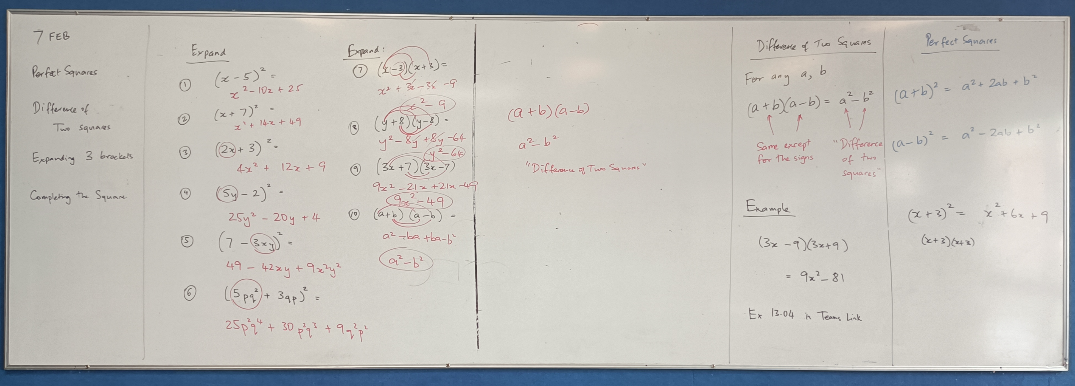 7 FEB
Perfect Squares
Difference of
Two squares
Expanding 3 brackets
Completing the Square
Expand
① (x - 5)² =
x² - 10x + 25
② (x + 7)² =
x² + 14x + 49
③ (2x + 3)² =
4x² + 12x + 9
④ (5y - 2)² =
25y² - 20y + 4
⑤ (7 - 3xy)² =
49 - 42xy + 9x²y²
⑥ (5pq² + 3qp)² =
25p²q⁴ + 30p²q³ + 9q²p²
Expand:
⑦ (x - 3)(x + 3) =
x² + 3x - 3x - 9
x² - 9
⑧ (y + 8)(y - 8) =
y² - 8y + 8y - 64
y² - 64
⑨ (3x + 7)(3x - 7)
9x² - 21x + 21x - 49
9x² - 49
⑩ (a + b)(a - b) =
a² - ba + ba - b²
a² - b²
(a + b)(a - b)
a² - b²
"Difference of Two Squares"
Difference of Two Squares
For any a, b
(a + b)(a - b) = a² - b²
Same except
for the signs
"Difference
of two
squares"
Example
(3x - 9)(3x + 9)
= 9x² - 81
Ex 13.04 in Teams Link
Perfect Squares
(a + b)² = a² + 2ab + b²
(a - b)² = a² - 2ab + b²
(x + 3)² = x² + 6x + 9
(x + 3)(x + 3)